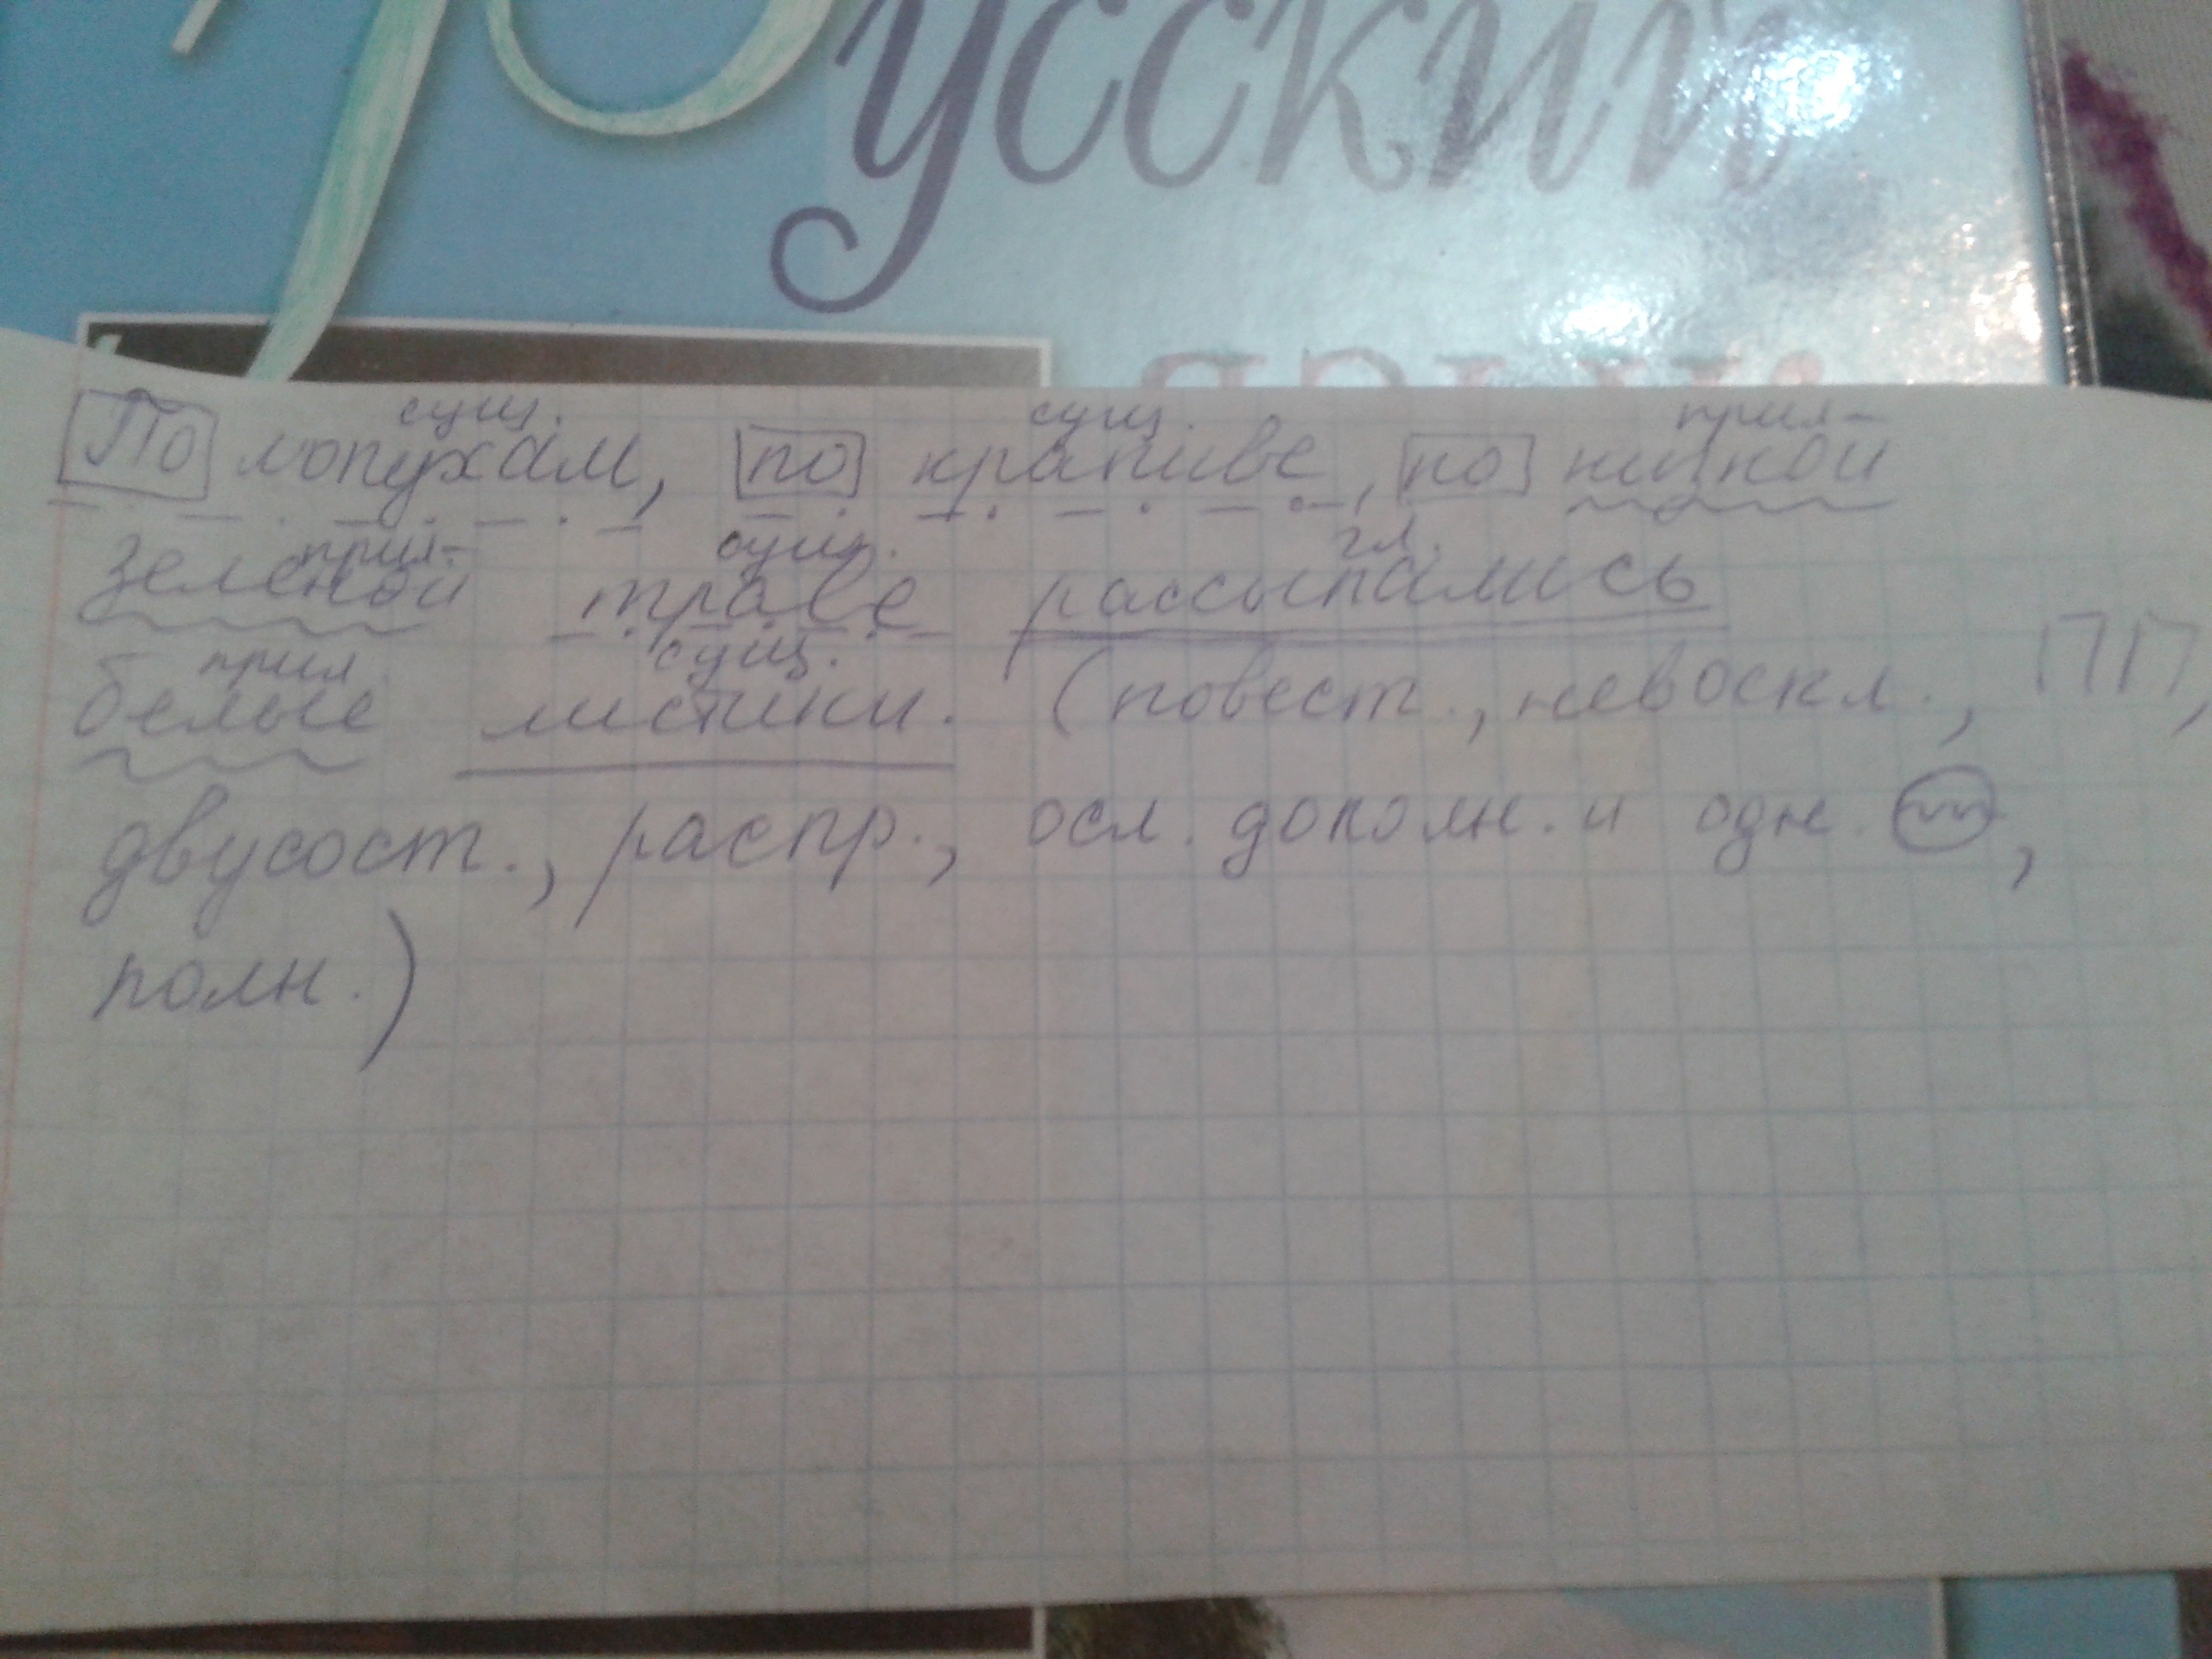 Русский
сущ. сущ. прил
По лопухам, по крапиве, по низкой
прил сущ. гл.
зеленой траве рассыпались
прил. сущ.
белые листики. (повест., невоскл., ПП,
двусост., распр., осл. дополн. и одн.,
полн.)